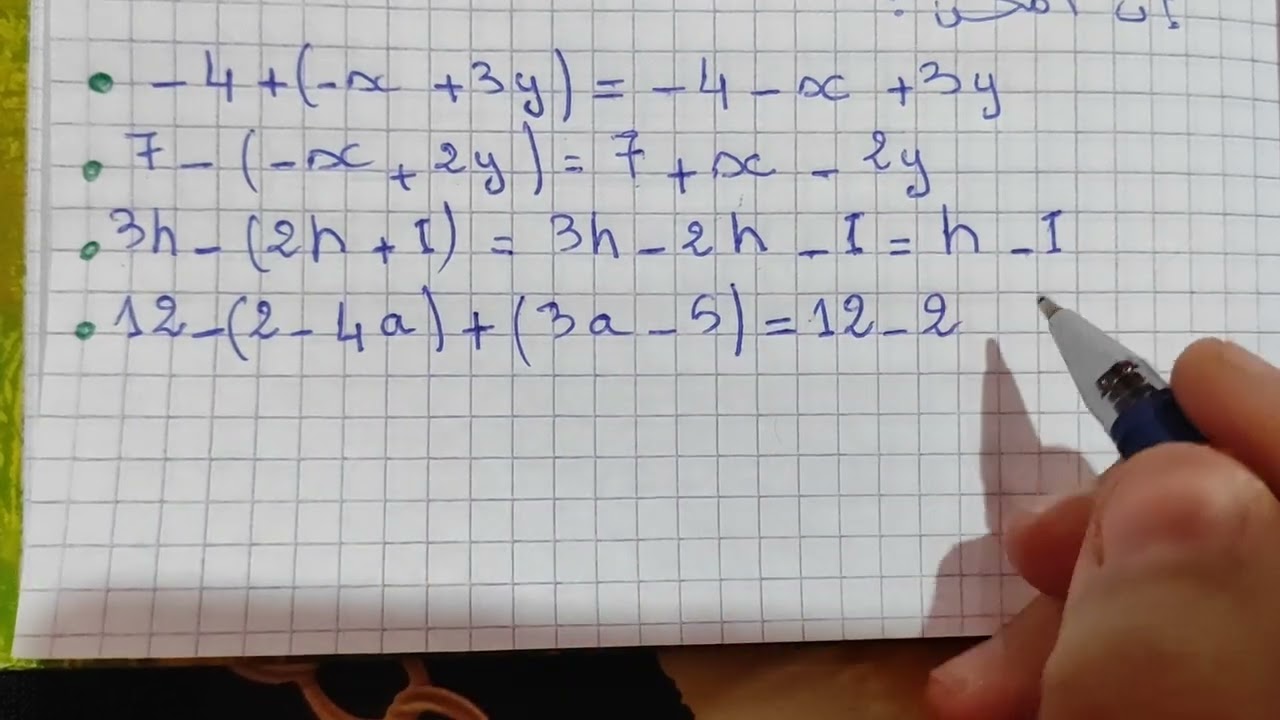 -4+(-x+3y)=-4-x+3y
7-(-x+2y)=7+x-2y
3h-(2h+I)=3h-2h-I=h-I
12-(2-4a)+(3a-5)=12-2